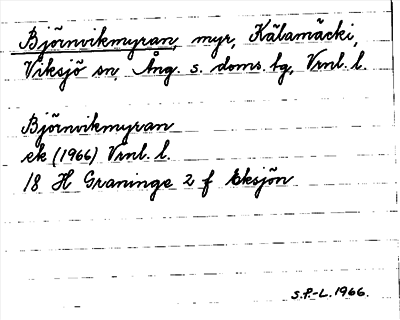 Björnvikmyran, myr, Kälamäcki,
Viksjö sn, Ång. s. doms. lg, Vrnl. l.
Björnvikmyran
ek (1966) Vrnl. l.
18 H Graninge 2 f Eksjön
S.P.-L. 1966.